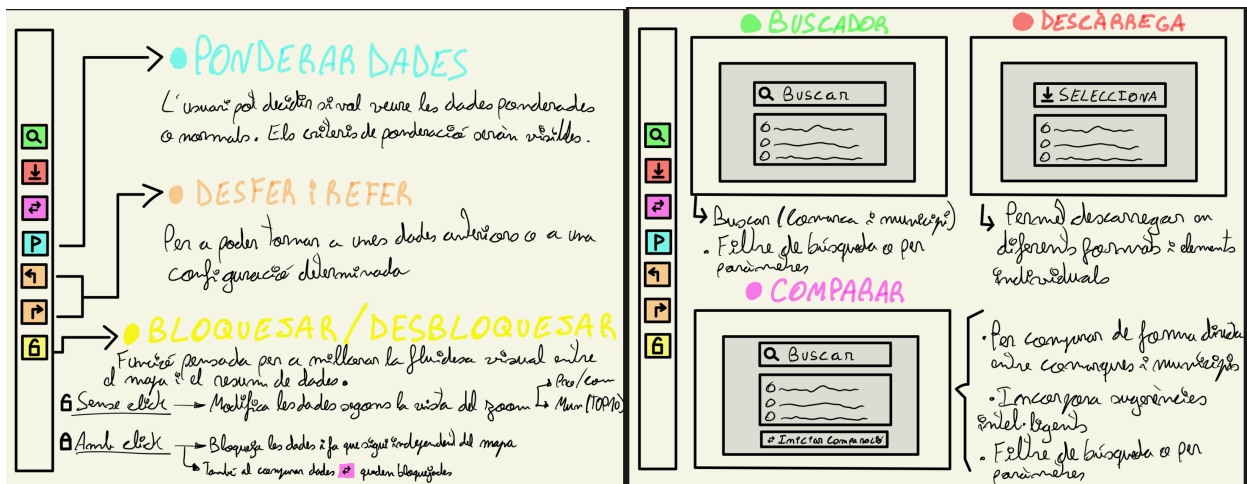 PONDERAR DADES
L'usuari pot decidir si vol veure les dades ponderades
o normals. Els criteris de ponderació seràn visibles.
P
DESFER i REFER
Per a poder tornar a unes dades anteriors o a una
configuració determinada
BLOQUEJAR/DESBLOQUEJAR
Funció pensada per a millorar la fluidesa visual entre
el mapa i el resum de dades.
Sense click → Modifica les dades segons la vista del zoom
Pro/com
Mun (TOP10)
Amb click → Bloqueja les dades i fa que sigui independent del mapa
També al comparar dades queden bloquejades
BUSCADOR
Buscar
Buscar (Comarca i municipi)
• Filtre de búsqueda o per
paràmetres
DESCÀRREGA
SELECCIONA
Permet descarregar en
diferents formats i elements
individuals
P
COMPARAR
Buscar
Iniciar Comparació
• Per comparar de forma directa
entre comarques i municipis
• Incorpora sugerències
intel·ligents
• Filtre de búsqueda o per
paràmetres